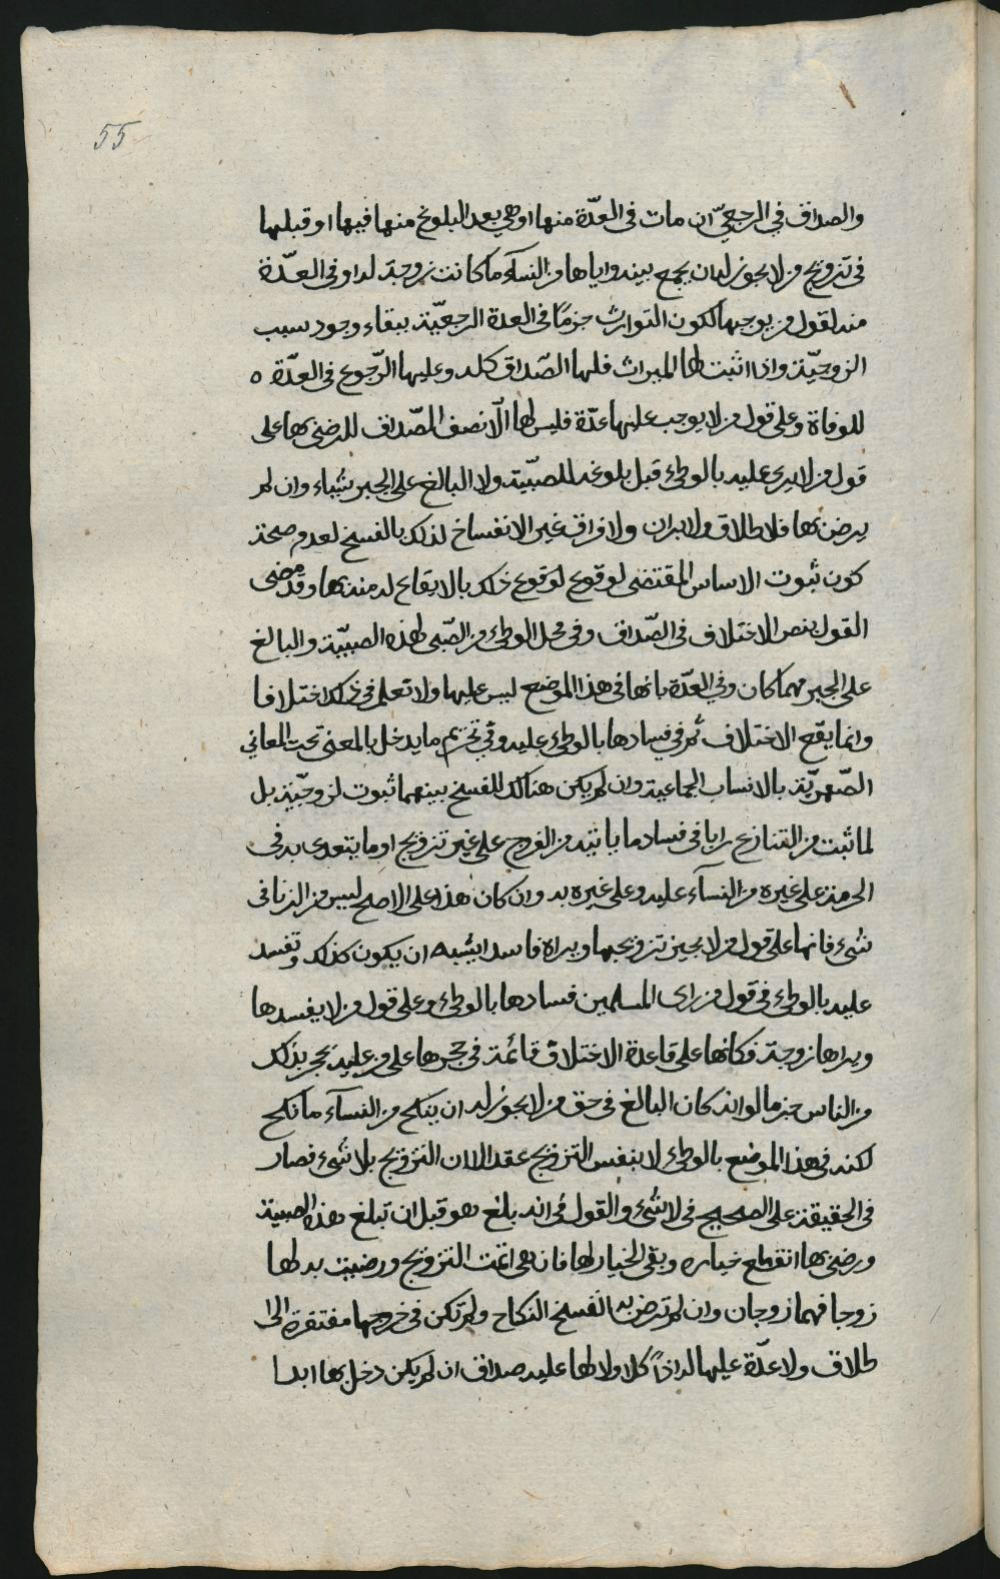 55
والصداق في الرجعيّ ان مات في العدّة منها او هي بعد البلوغ منها فيها او قبلها
في تزويج من لا يجوز له ان يجمع بينه واياها من النسآء ما كانت زوجة له او في العدّة
منه لقول من يوجبها لكون التوارث جزمًا في العدة الرجعيّة ببقاء وجود سبب
الزوجيّة واذا اثبت لها الميراث فلها الصّداق كله وعليها الرّجوع في العدّة ه
للوفاة وعلى قول من لا يوجب عليها عدّة فليس لها الّا نصف الصّداق للرضى بها على
قول من لا يرى عليه بالوطىء قبل بلوغه للصبيّة ولا البالغ على الجبر شيئاء وان لم
يرض بها فلا طلاق ولا بران ولا فراق غير الانفساخ لذلك بالفسخ لعدم صحة
كون ثبوت الاساس المقتضى لوقوع لوقوع ذلك بالايقاع له منه بها وقد مضى
القول بنص الاختلاف في الصّداق وفي محل الوطىء من الصّبى لهذه الصبيّة والبالغ
على الجبر مهما كان وفي العدّة بانها في هذا الموضع ليس عليها ولا نعلم في ذلك اختلافا
وانما يقع الاختلاف ثم في فسادها بالوطىء عليه وفي تحريم ما يدخل بالمعنى تحت المعاني
الصّهريّة بالانساب الجماعية وان لم يكن هنالك للفسخ بينهما ثبوت لزوجيّة بل
لما ثبت من التنازع رايا في فساد ما ياتيه من الفروج على غير تزويج او ما يتعدى به في
الحرمة على غيره من النسآء عليه وعلى غيره به وان كان هذا على الاصح ليس من الزنا في
شيء فانها على قول من لا يجيز تزويجها ويراه فاسدا يشبه ان يكون كذلك وتفسد
عليه بالوطىء في قول من راى المسلمين فسادها بالوطىء وعلى قول من لا يفسدها
ويراها زوجة فكانها على قاعدة الاختلاف قائمة في حجرها على من عليه تحجر بذلك
من الناس جزما لو انه كان البالغ في حق من لا يجوز له ان ينكح من النسآء ما نكح
لكنه في هذا الموضع بالوطىء لا بنفس التزويج عقدا لان التزويج بلا شيء فصار
في الحقيقة على الصحيح في لا شيء والقول في انه بلغ هو قبل ان تبلغ هذه الصبية
ورضى بها انقطع خياره وبقى الخيار لها فان هى اتمت التزويج ورضيت به لها
زوجا فهما زوجان وان لم ترض به انفسخ النكاح ولم تكن في خروجها مفتقرة الى
طلاق ولا عدّة عليها له اذًا كلا ولا لها عليه صداق ان لم يكن دخل بها ابدا